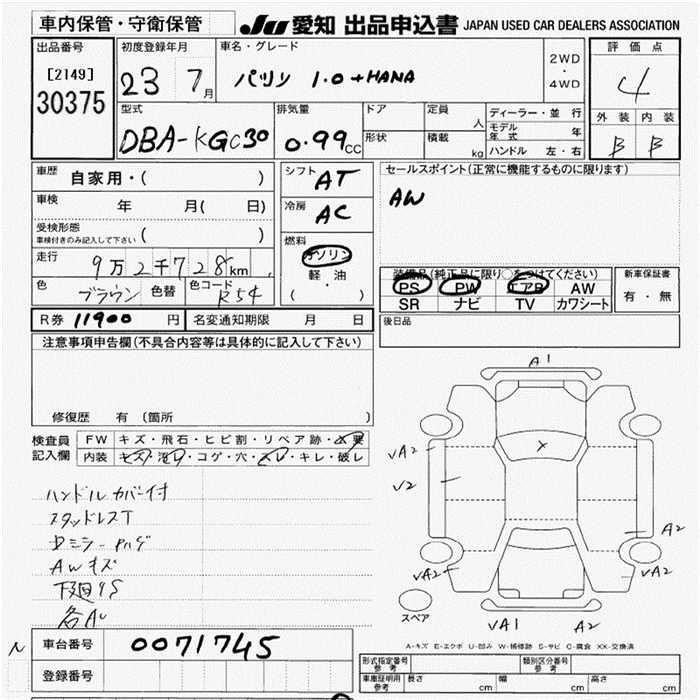 車内保管・守衛保管
JU 愛知 出品申込書 JAPAN USED CAR DEALERS ASSOCIATION
出品番号
[2149]
30375
初度登録年月
23 7月
車名・グレード
パッソ 1.0 +HANA
2WD
・
4WD
評価点
4
外装 内装
B B
型式
DBA-KGC30
排気量
0.99cc
ドア
形状
定員 人
積載 kg
ディーラー・並行
モデル年式 年
ハンドル 左・右
車歴 自家用・( )
車検 年 月( 日)
受検形態
車検付きのみ記入して下さい ( )
走行 9万2千728km
色 ブラウン 色替 色コード R54
シフト AT
冷房 AC
燃料
ガソリン
軽・油
( ・ )
セールスポイント(正常に機能するものに限ります)
AW
装備品(純正品に限り○をつけてください)
PS PW エアB AW
SR ナビ TV カワシート
新車保証書
有・無
R券 11900円 名変通知期限 月 日
後日品
注意事項申告欄(不具合内容等は具体的に記入して下さい)
修復歴 有(箇所
検査員
記入欄
FW キズ・飛石・ヒビ割・リペア跡・X要
内装 キズ・汚れ・コゲ・穴・スレ・キレ・破レ
ハンドルカバー付
スタッドレスT
AWキズ
下廻りS
各AU
A1
VA2
V2
VA2
A2
VA2
VA1
A2
スペア
A-キズ E-エクボ U-凹み W-補修跡 S-サビ C-腐食 XX-交換済
N
車台番号 0071745
登録番号
形式指定番号
参考
類別区分番号
参考
車庫証明用
参考
長さ cm 幅 cm 高さ cm